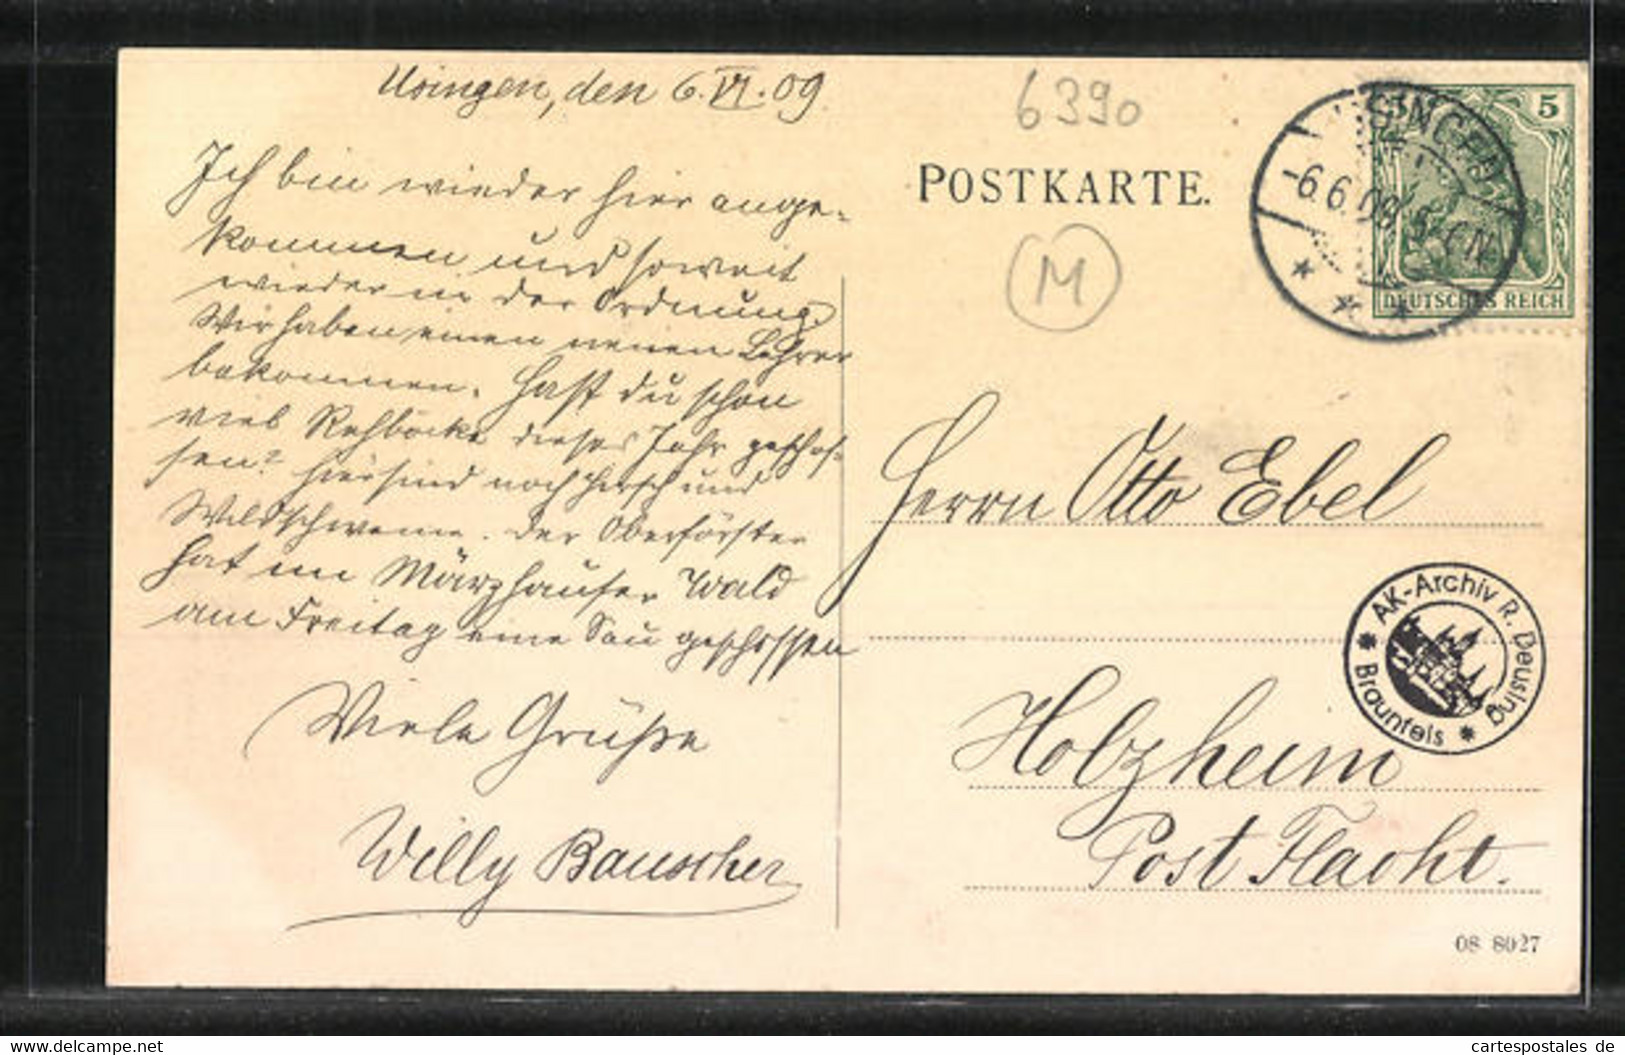 Usingen, den 6. VI. 09
Ich bin wieder hier ange-
kommen und soweit
wieder in der Ordnung.
Wir haben einen neuen Lehrer
bekommen. Hast du schon
viel Rehböcke dieses Jahr geschos-
sen? Hier sind noch Hirsch und
Wildschweine. Der Oberförster
hat im Märzhauser Wald
am Freitag eine Sau geschossen
Viele Grüße
Willy Bauscher
6390
POSTKARTE.
M
USINGEN
-6.6.09
5
DEUTSCHES REICH
Herrn Otto Ebel
AK-Archiv R. Deusing
* Braunfels *
Holzheim
Post Flacht.
08 8027
www.cartespostales.com
cartespostales de